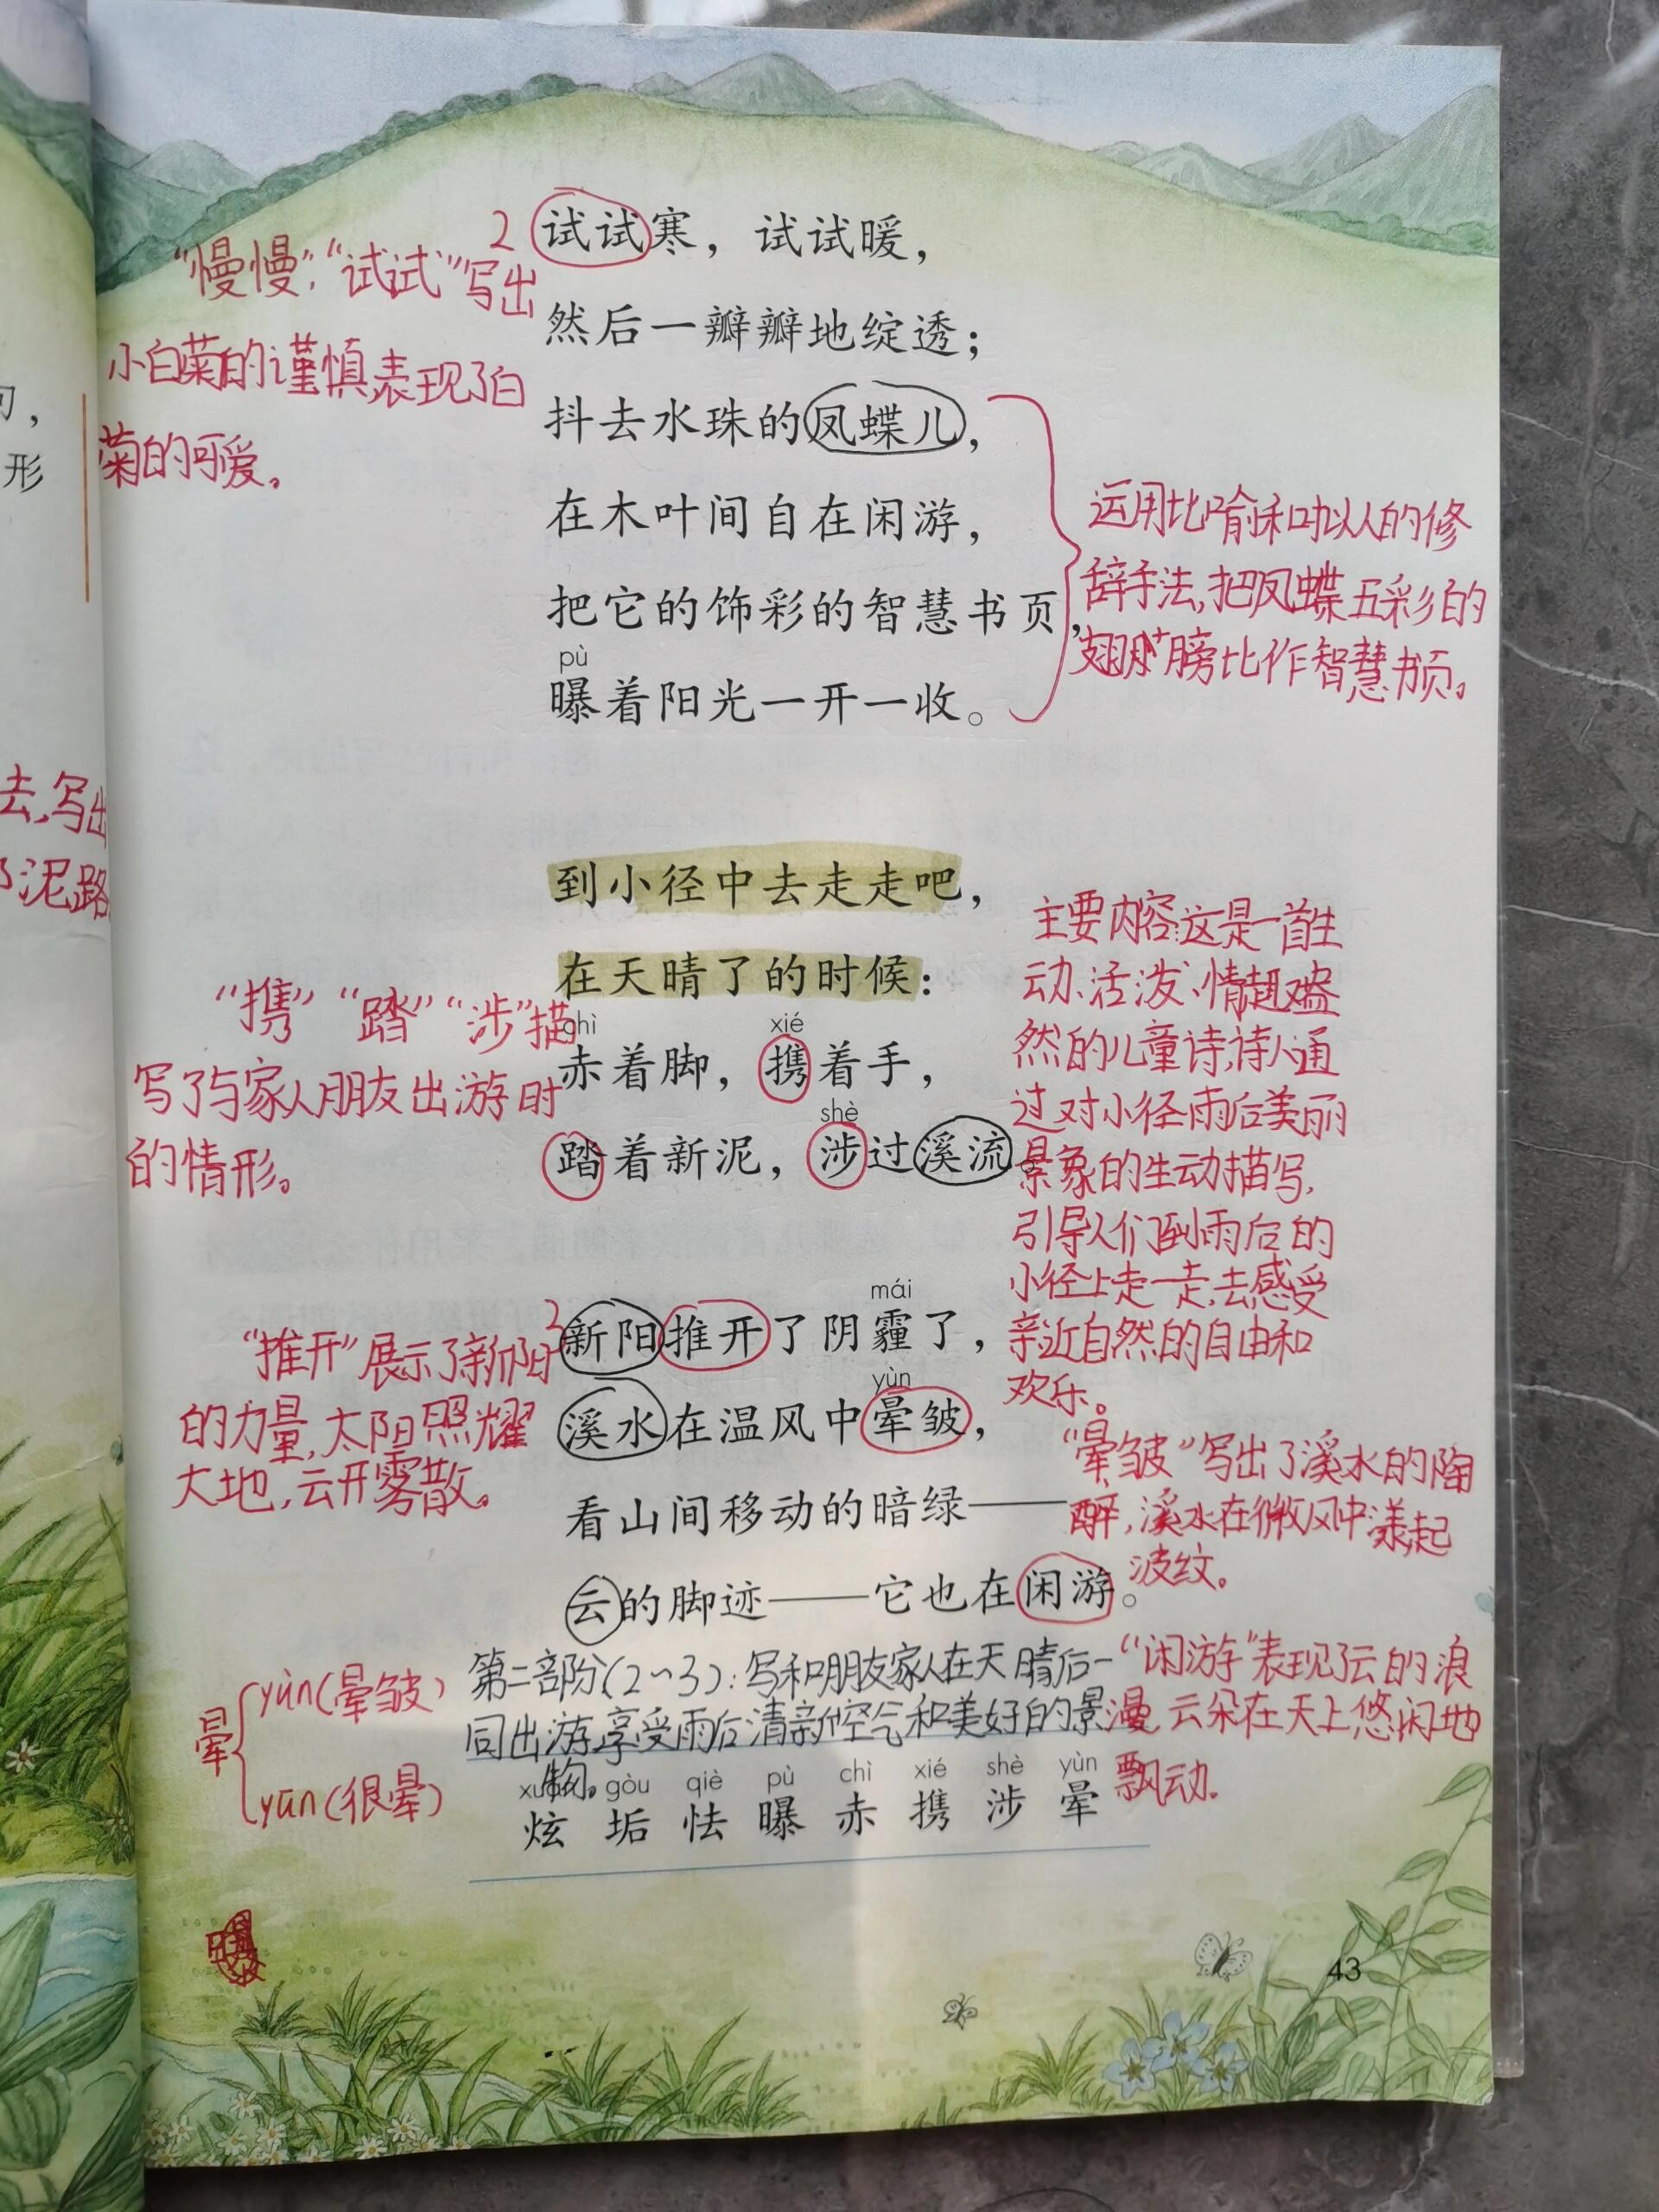 句，
形
去，写出
泥路
2 试试寒，试试暖，
然后一瓣瓣地绽透；
抖去水珠的凤蝶儿，
在木叶间自在闲游，
把它的饰彩的智慧书页，
pù
曝着阳光一开一收。
“慢慢”，“试试”写出
小白菊的谨慎表现了白
菊的可爱。
运用比喻和拟人的修
辞手法，把凤蝶五彩的
翅膀比作智慧书页。
到小径中去走走吧，
在天晴了的时候：
chì xié
赤着脚，携着手，
shè
踏着新泥，涉过溪流
“携”“踏”“涉”描
写了与家人朋友出游时
的情形。
主要内容：这是一首生
动、活泼、情趣盎
然的儿童诗，诗人通
过对小径雨后美丽
景象的生动描写，
引导人们到雨后的
小径上走一走，去感受
亲近自然的自由和
欢乐。
mái
3 新阳推开了阴霾了，
yùn
溪水在温风中晕皱，
看山间移动的暗绿——
云的脚迹——它也在闲游。
“推开”展示了新阳
的力量，太阳照耀
大地，云开雾散。
“晕皱”写出了溪水的陶
醉，溪水在微风中漾起
波纹。
“闲游”表现了云的浪
漫，云朵在天上悠闲地
飘动.
第二部分（2～3）：写和朋友家人在天晴后一
同出游，享受雨后清新空气和美好的景
物。
晕
yùn（晕皱）
yūn（很晕）
gòu qiè pù chì xié shè yùn
炫 垢 怯 曝 赤 携 涉 晕
43